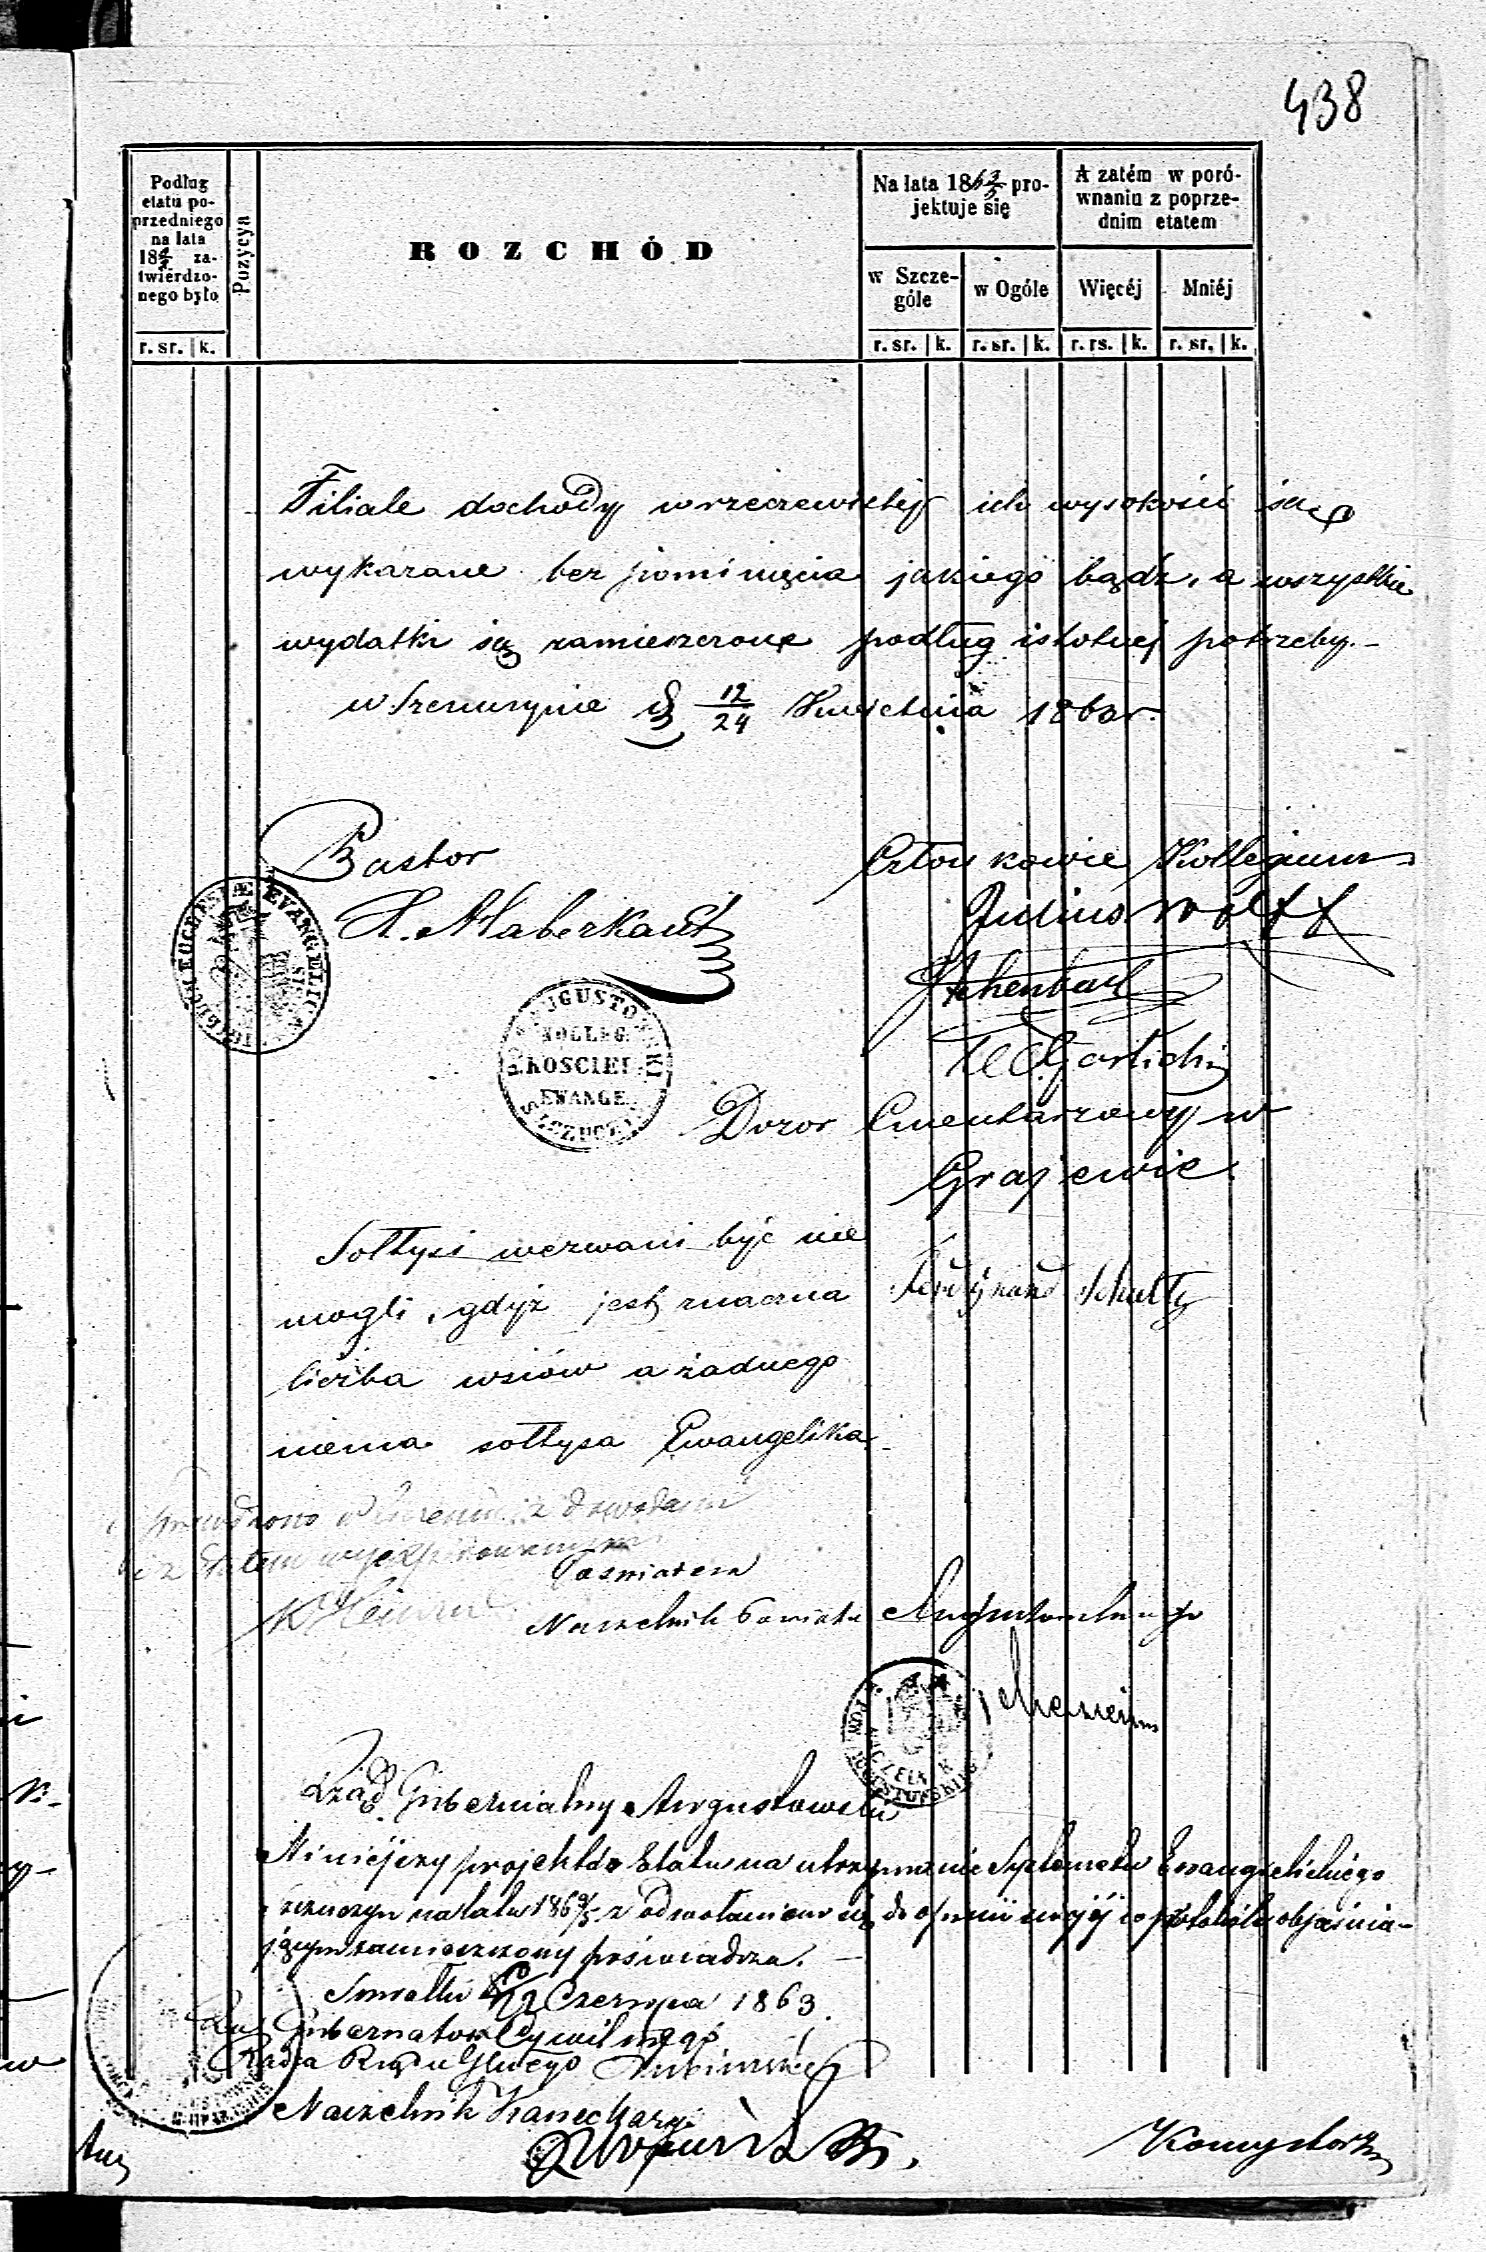 438
Podług
etatu po-
przedniego
na lata
18 za-
twierdzo-
nego było
Pozycya
ROZCHÓD
Na lata 1863/5 pro-
jektuje się
A zatém w poró-
wnaniu z poprze-
dnim etatem
w Szcze-
góle
w Ogóle
Więcéj
Mniéj
r. sr. k.
r. sr. k. r. sr. k. r. rs. k. r. sr. k.
Filiale dochody w rzeczewistej ich wysokości są
wykazane bez pominięcia jakiego bądź, a wszystkie
wydatki są zamieszczone podług istotnej potrzeby.-
w Szczuczynie d 12/24 Kwietnia 1863 r.
Pastor
Członkowie Kollegium
Julius Wolff
AUGUSTOWSKI
KOLLEG.
KOSCIEL
EWANGE.
Dozor Cmentarzowy w
Grajewie
Sołtysi wezwani być nie
mogli, gdyż jest znaczna
liczba wsiów a żadnego
niema sołtysa Ewangelika
Ferdynand Schultz
Naczelnik Powiatu Augustowskiego
Rząd Gubernialny Augustowski
Niniejszy projekt do Etatu na utrzymanie Ewangelickiego
Szczuczyn na lata 1863/5 z odwołaniem się do opinii swojéj w protokóle objaśnia-
jącym zamieszczonéj poświadcza. —
Suwałki Czerwca 1863
Gubernatora Cywilnego
Radca Rządu
Naczelnik Kancellaryi